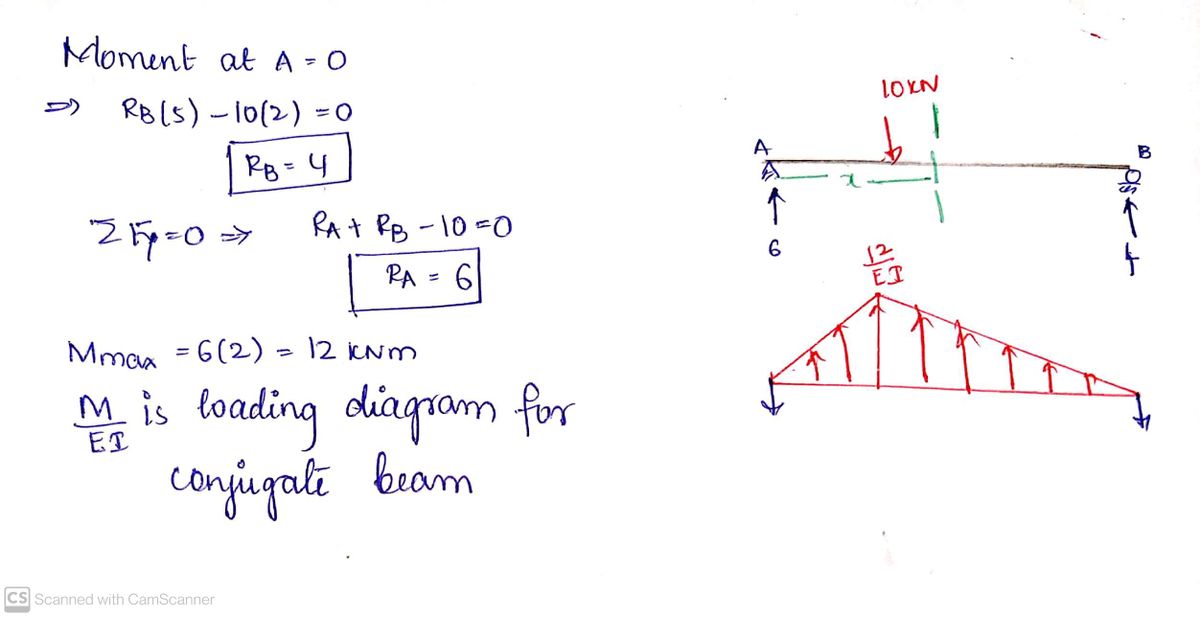 Moment at A = 0
⇒ RB(5) – 10(2) = 0
RB = 4
ΣFy = 0 ⇒ RA + RB – 10 = 0
RA = 6
Mmax = 6(2) = 12 kNm
M/EI is loading diagram for
conjugate beam
10 KN
A
B
x
6
4
12/EI
CS Scanned with CamScanner